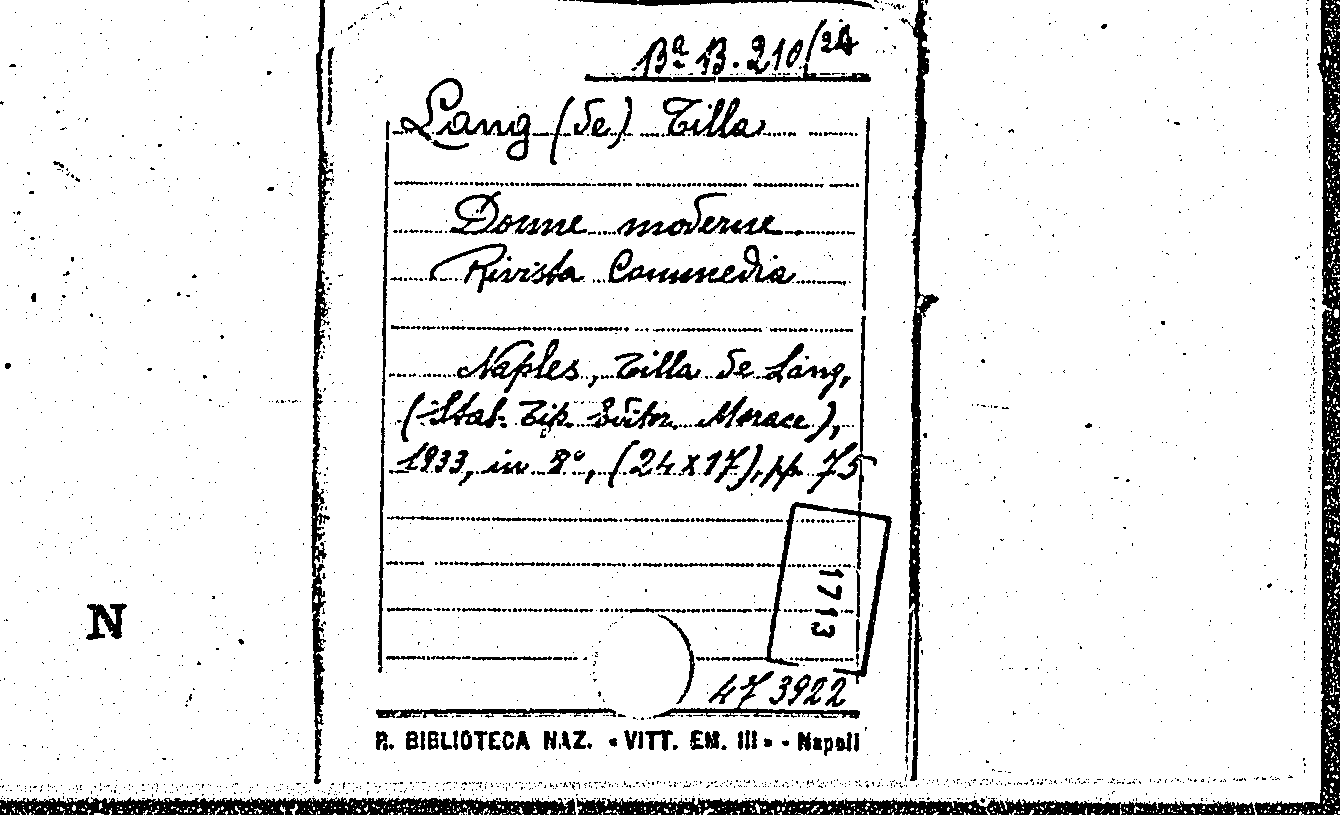 Bª B. 210/24
Lang (de) Zilla
Donne moderne.
Rivista Commedia
Naples, Zilla de Lang,
(Stab. Tip. Editor. Morace),
1933, in 8°, (24x17), pp. 75
1713
N
473922
R. BIBLIOTECA NAZ. « VITT. EM. III » - Napoli